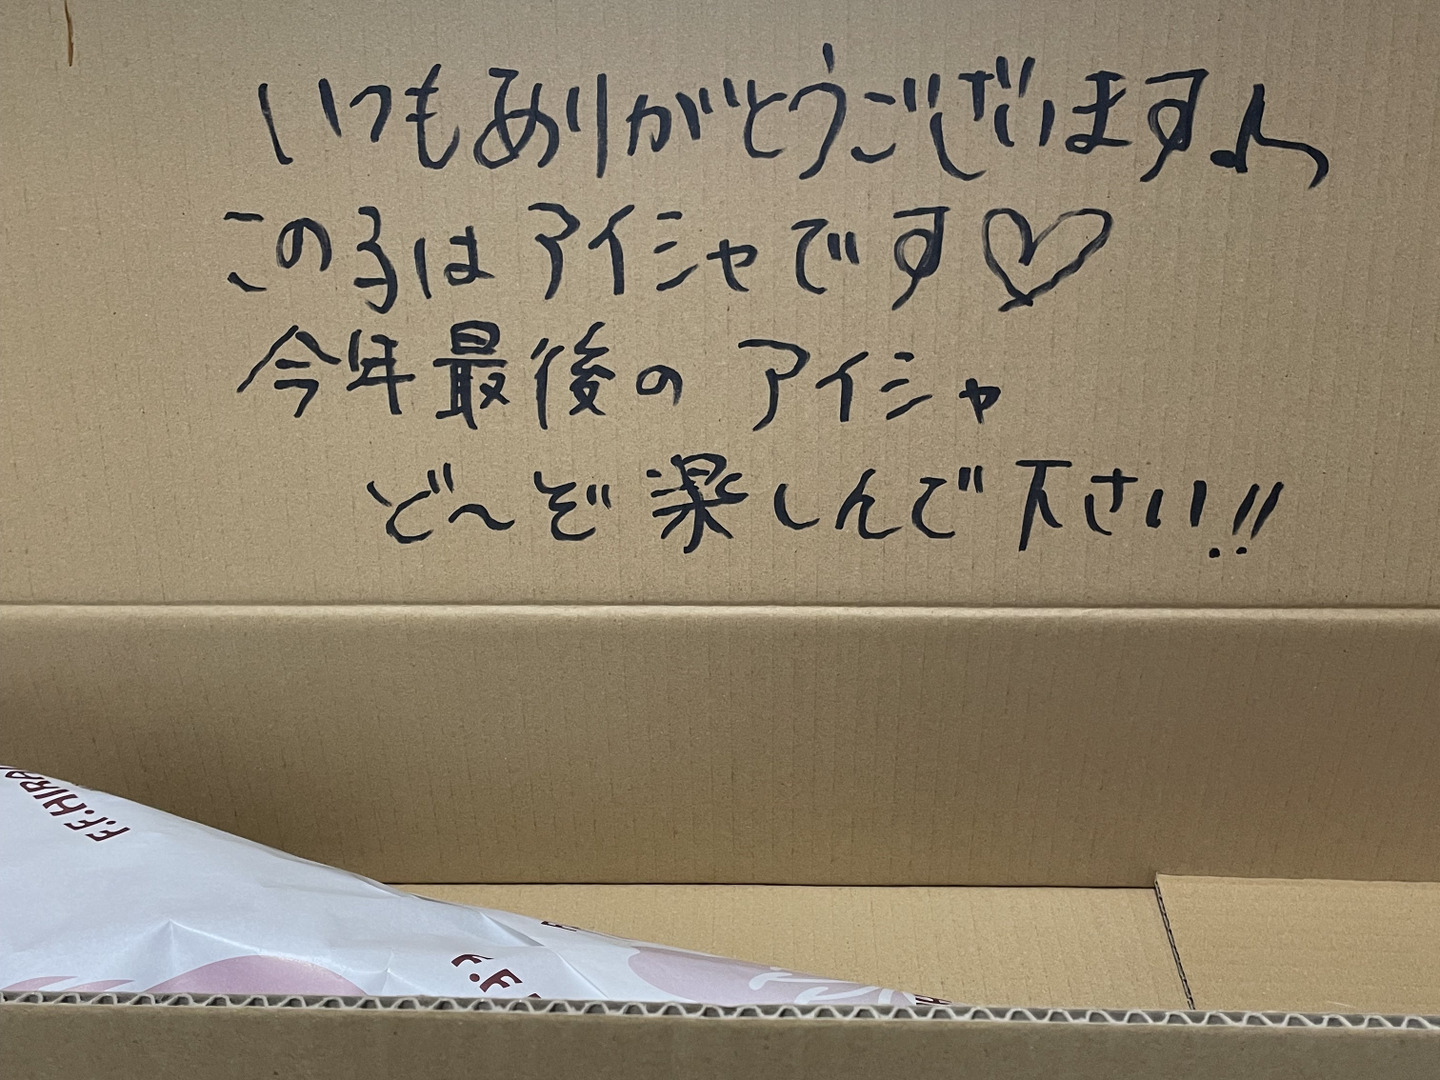 いつもありがとうございます♪
この子はアイシャです♡
今年最後のアイシャ
ど〜ぞ楽しんで下さい!!
F.F.HIRA